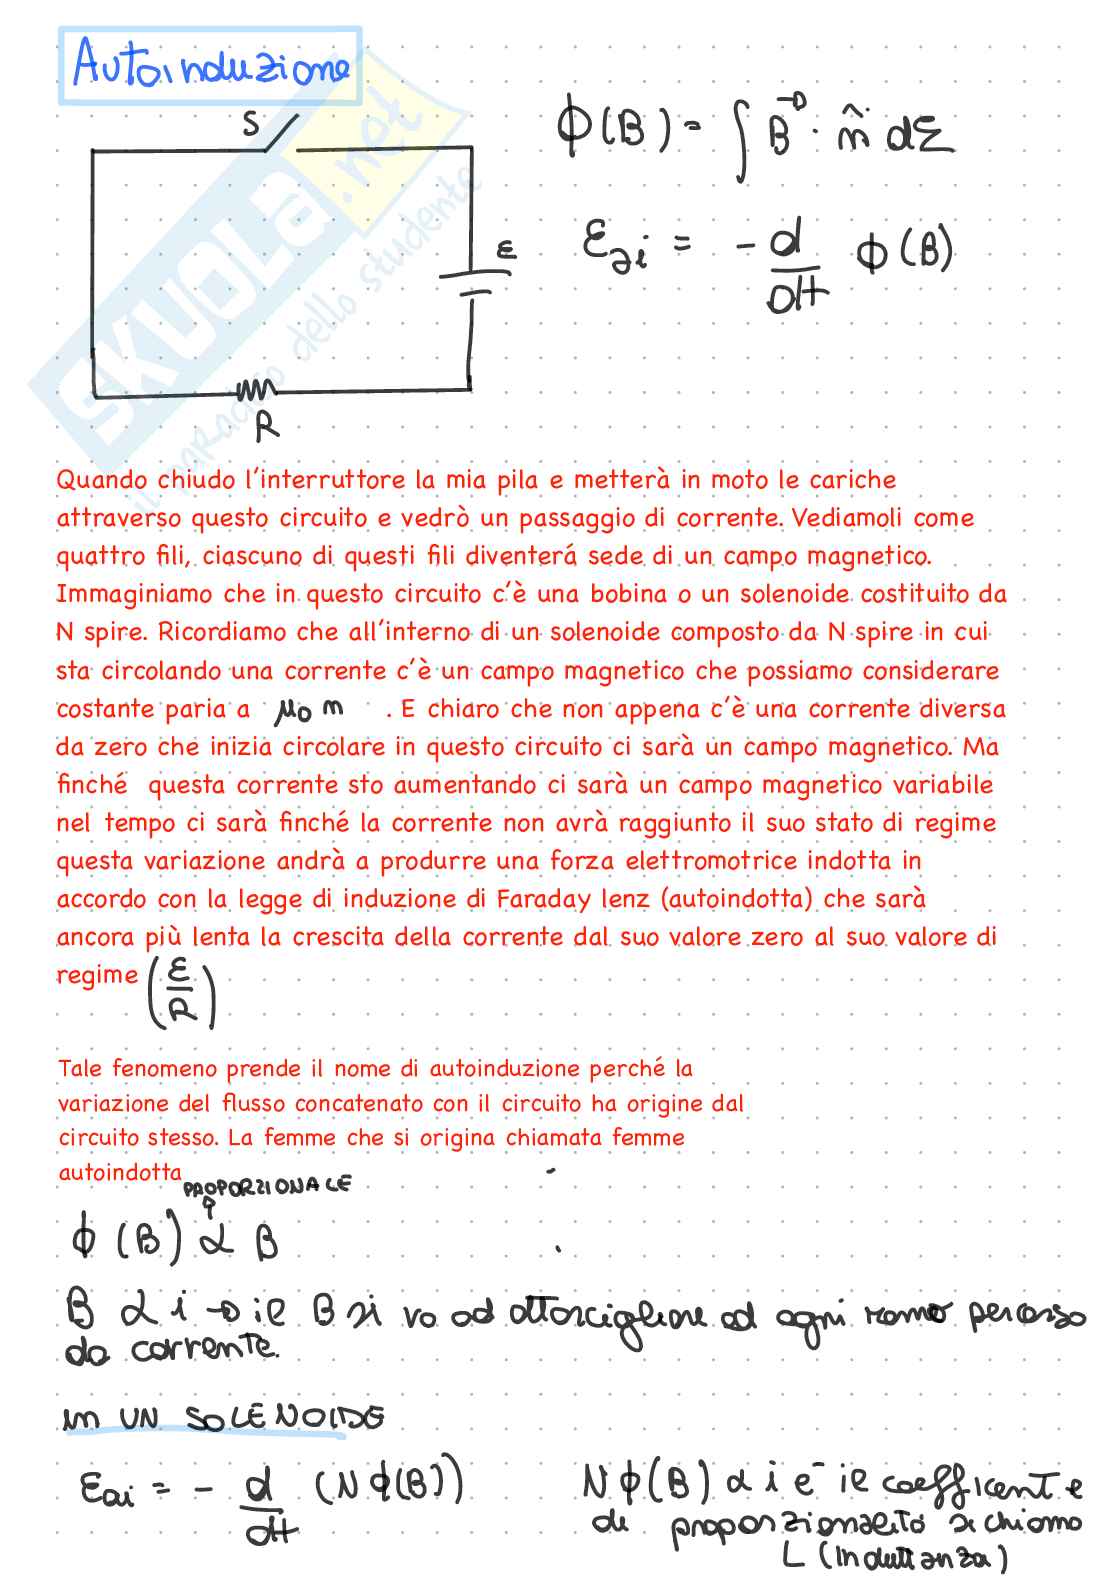 Autoinduzione
S
ε
R
Φ(B) = ∫ B⃗ · n̂ dΣ
ε_ai = - d/dt Φ(B)
SKUOLA.net
il paradiso dello studente
Quando chiudo l'interruttore la mia pila e metterà in moto le cariche
attraverso questo circuito e vedrò un passaggio di corrente. Vediamoli come
quattro fili, ciascuno di questi fili diventerá sede di un campo magnetico.
Immaginiamo che in questo circuito c'è una bobina o un solenoide costituito da
N spire. Ricordiamo che all'interno di un solenoide composto da N spire in cui
sta circolando una corrente c'è un campo magnetico che possiamo considerare
costante paria a μ₀ n . E chiaro che non appena c'è una corrente diversa
da zero che inizia circolare in questo circuito ci sarà un campo magnetico. Ma
finché questa corrente sto aumentando ci sarà un campo magnetico variabile
nel tempo ci sarà finché la corrente non avrà raggiunto il suo stato di regime
questa variazione andrà a produrre una forza elettromotrice indotta in
accordo con la legge di induzione di Faraday lenz (autoindotta) che sarà
ancora più lenta la crescita della corrente dal suo valore zero al suo valore di
regime (ε/R)
Tale fenomeno prende il nome di autoinduzione perché la
variazione del flusso concatenato con il circuito ha origine dal
circuito stesso. La femme che si origina chiamata femme
autoindotta
PROPORZIONALE
Φ(B) α B
B α i → il B si va ad attorcigliare ad ogni ramo percorso
da corrente.
in UN SOLENOIDE
ε_ai = - d/dt (NΦ(B))
NΦ(B) α i e il coefficente
di proporzionalità si chiama
L (induttanza)